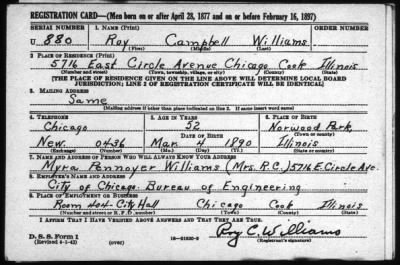 REGISTRATION CARD—(Men born on or after April 28, 1877 and on or before February 16, 1897)
SERIAL NUMBER 1. NAME (Print) ORDER NUMBER
U 880 Roy Campbell Williams
(First) (Middle) (Last)
2. PLACE OF RESIDENCE (Print)
5716 East Circle Avenue Chicago Cook Illinois
(Number and street) (Town, township, village, or city) (County) (State)
[THE PLACE OF RESIDENCE GIVEN ON THE LINE ABOVE WILL DETERMINE LOCAL BOARD
JURISDICTION; LINE 2 OF REGISTRATION CERTIFICATE WILL BE IDENTICAL]
3. MAILING ADDRESS
Same
[Mailing address if other than place indicated on line 2. If same insert word same]
4. TELEPHONE 5. AGE IN YEARS 6. PLACE OF BIRTH
Chicago 52 Norwood Park,
DATE OF BIRTH (Town or county)
New. 0436 Mar. 4 1890 Illinois
(Mo.) (Day) (Yr.) (State or country)
7. NAME AND ADDRESS OF PERSON WHO WILL ALWAYS KNOW YOUR ADDRESS
Myra Pennoyer Williams (Mrs. R.C.) 5716 E. Circle Ave.
8. EMPLOYER'S NAME AND ADDRESS
City of Chicago. Bureau of Engineering
9. PLACE OF EMPLOYMENT OR BUSINESS
Room 404-City Hall Chicago Cook Illinois
(Number and street or R. F. D. number) (Town) (County) (State)
I AFFIRM THAT I HAVE VERIFIED ABOVE ANSWERS AND THAT THEY ARE TRUE.
D. S. S. Form 1
(Revised 4-1-42) (over) Roy C. Williams
(Registrant's signature)